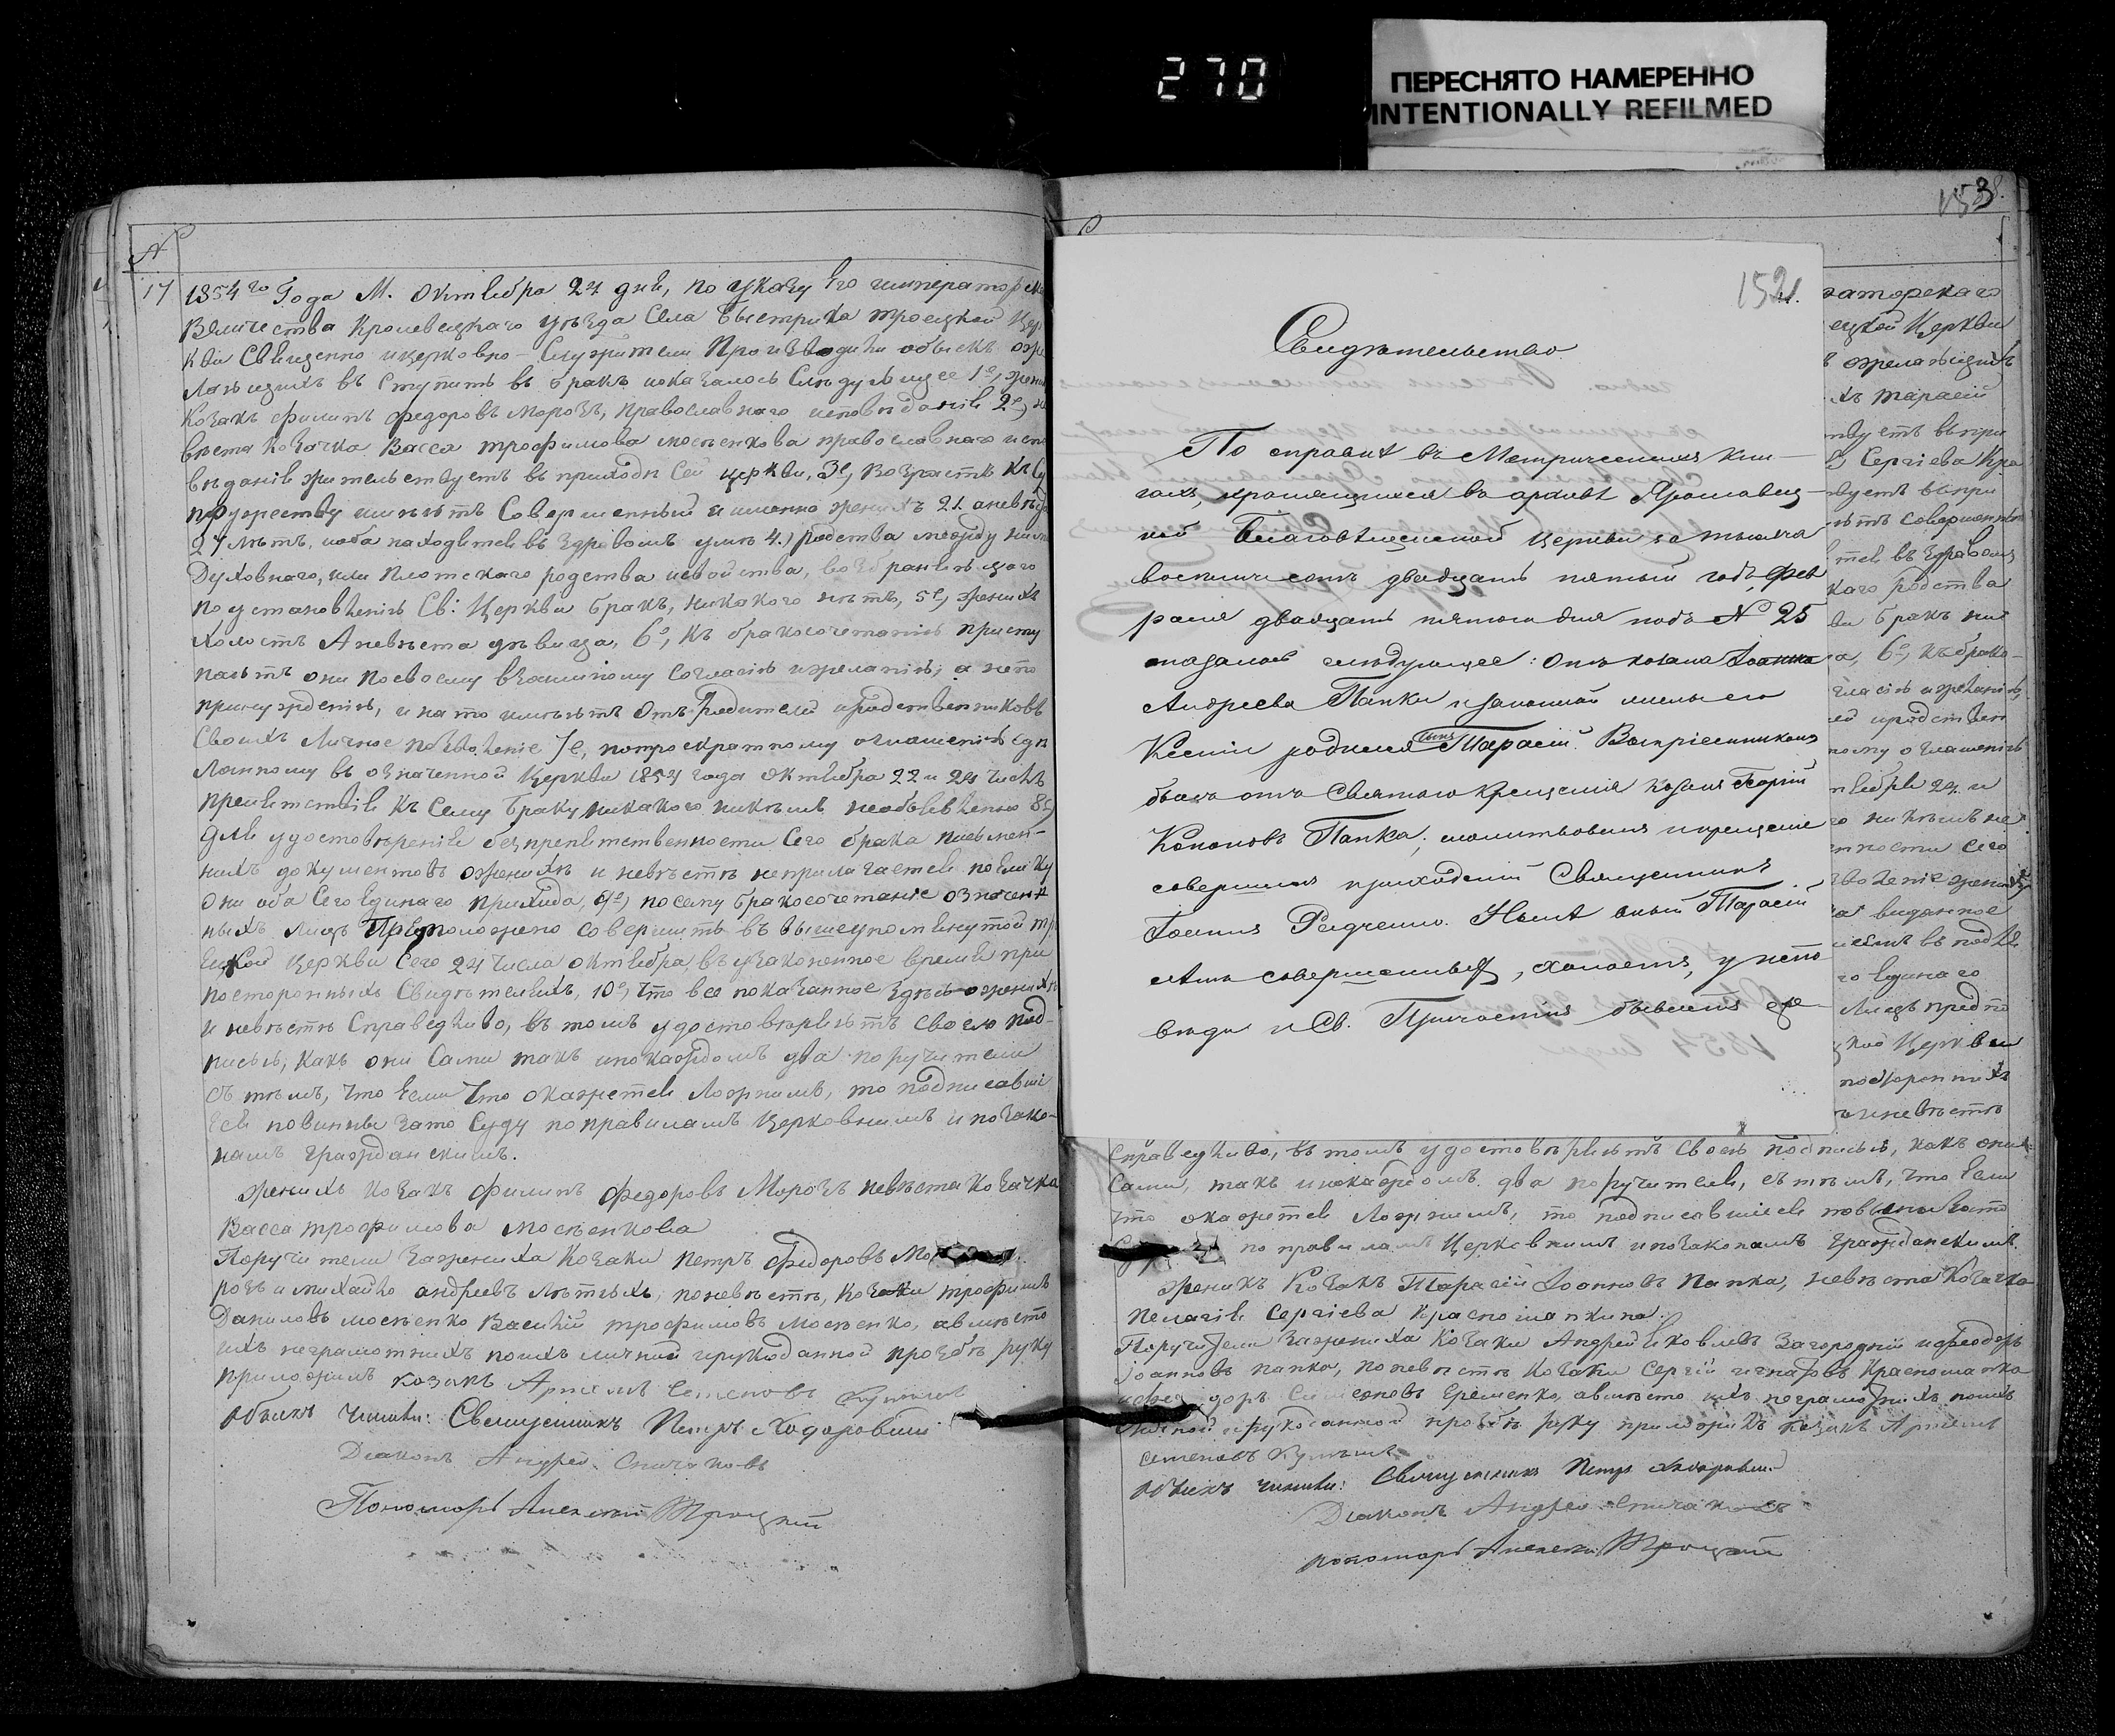 270
ПЕРЕСНЯТО НАМЕРЕННО
INTENTIONALLY REFILMED
№
17
1854го Года М. Октября 24 дня, по указу Его император
Величества Кролевецкаго уезда Села Быстрика троецкой Цер
кви Священно ицерковно-Служители Производили обыскъ
в Ступить въ бракъ иоказалось Слѣдующее 1е, жени
Козакъ филипъ федоровъ Морозъ, православнаго исповѣданія 2е, не
вѣста козачка Васса трофимова мосѣенкова православнаго испо
вѣданія жительствуетъ въ приходѣ Сей церкви, 3е, Возрастъ къ Су
пружеству имѣютъ Совершенный и именно женихъ 21. аневѣс
24 лѣтъ, иоба находятся въ здравомъ умѣ 4.) родства между ними
Духовнаго, или плотскаго родства исвойства, возбраняющаго
по установленію Св: Церкви бракъ, никакого нѣтъ, 5е, женихъ
холостъ Аневѣста дѣвица, 6е, къ бракосочетанію присту
паютъ они посвоему взаимному Согласію ижеланію, а непо
принужденію, и на то имѣютъ Отъ Родителей иродственниковъ
Своихъ Личное позволеніе 7е, потроекратному оглашенію здѣ
ланному въ означенной Церкви 1854 года Октября 22 и 24 числъ
препятствія къ Сему браку никакого никѣмъ необъявлено 8е,
Для удостовѣренія безпрепятственности Сего брака писмен-
нихъ документовъ оженихѣ и невѣстѣ неприлагается поелику
Они оба Сего Единаго прихода, 9е, посему бракосочетаніе означен
ныхъ лицъ Предположено совершить въ вышеупомянутой тро
ецкой Церкви Сего 24 числа октября, въ узаконенное время при
постороннихъ Свидѣтеляхъ, 10е, что все показанное здѣсь оженихѣ
и невѣстѣ Справедливо, въ томъ удостовѣряютъ своею под-
писью, какъ они Сами такъ ипокаждомъ два поручители
съ тѣмъ, что Если что окажется Ложнимъ, то подписавші
Еся повинны зато Суду поправиламъ Церковнимъ и позако-
намъ гражданскимъ.
женихъ козакъ филипъ федоровъ Морозъ невѣста козачка
Васса трофимова мосѣенкова
Поручители зажениха козаки петръ федоровъ Мо
розъ и михайло андреевъ Лѣтнихъ, поневѣстѣ, козаки трофимъ
Даниловъ мосѣенко Василій трофимовъ Мосѣенко, авмѣсто
ихъ неграмотнихъ поихъ личной ирукоданной прозбѣ руку
приложилъ козакъ Артемъ Семеновъ
Обыскъ чинили: Священникъ Петръ Ходоровскій
Діаконъ Андрей Спичаковъ
Пономарь Алексей Троицкій
153
152
Свидѣтельство
По справкѣ въ Метрическихъ кни-
гахъ, хранящихся въ архивѣ Ярославец-
кой Благовѣщенской церкви за тысяча
восемьсотъ двадцать пятый годъ, фев
раля двадцать пятого дня подъ № 25
оказалось слѣдующее: Отъ козака Іоанна
Андреева Папки и законной жены его
Ксеніи родился сынъ Тарасій. Воспріемникомъ
былъ отъ Святаго Крещенія козакъ Георгій
Кононовъ Папка; молитвовалъ и крещеніе
совершилъ приходскій Священникъ
Іоаннъ Редченко. Нынѣ оный Тарасій
лѣтъ совершенныхъ, холостъ, у испо
вѣди и Св. Причастія бываетъ еже
раторскаго
ецкой Церкви
желающихъ
хъ тарасій
твуетъ въпри
Сергіева Кра
вуетъ въпри
ютъ совершен
тся въ здравомъ
каго родства
ви бракъ ни
а, 6е, къ брако-
гласію ижеланію,
ей иродствен
ному оглашенію
тября 24 и
го никѣмъ не
нности Сего
виданное
го Единаго
Лицъ предпо
кой Церкви
постороннихъ
и невѣстѣ
Справедливо, въ томъ удостовѣряютъ своею подписью, какъ они
Сами, такъ ипокаждомъ два поручителя, съ тѣмъ, что Если
что окажется Ложнимъ, то подписавшіеся повинны зато
Суду поправиламъ Церковнимъ ипозаконамъ Гражданскимъ.
женихъ Козакъ Тарасій Іоанновъ Папка, невѣста Козачка
Пелагія Сергіева Красношапкина
Поручители зажениха Козаки Андрей Яковлевъ Загородній иФеодоръ
Іоанновъ папка, поневѣстѣ Козаки Сергій игнатовъ Красношапка
ифеодоръ Симеоновъ Еременко, авмѣсто ихъ неграмотнихъ поихъ
Личной ирукоданной прозбѣ руку приложилъ Козакъ Артемъ
Семеновъ
Обыскъ чинили: Священникъ Петръ Ходоровскій
Діаконъ Андрей Спичаковъ
пономарь Алексей Троицкій